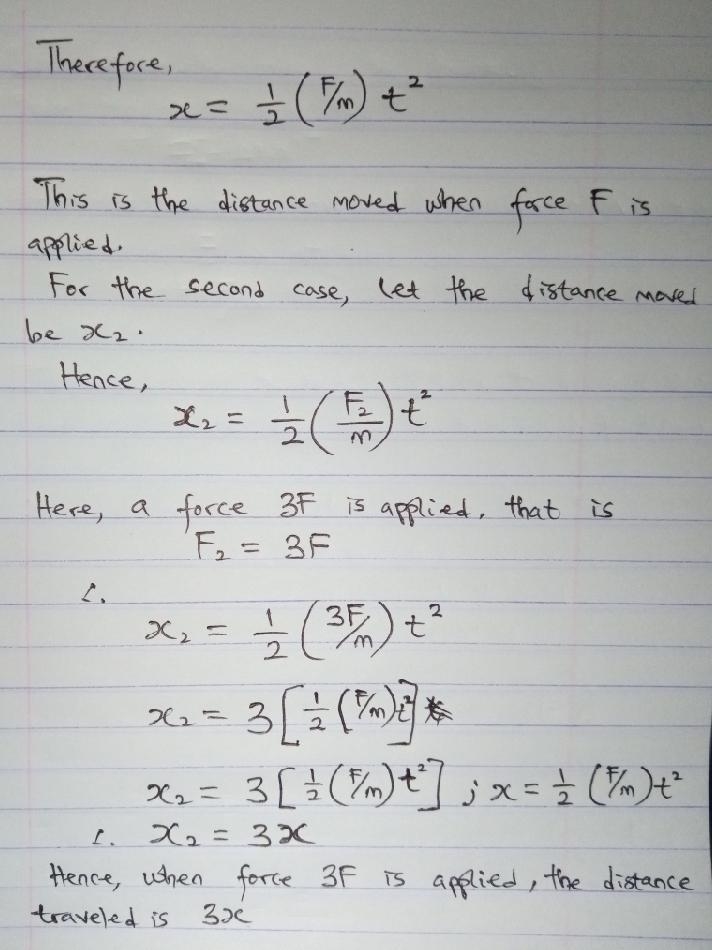 Therefore,
x = 1/2 (F/m) t²
This is the distance moved when force F is
applied.
For the second case, let the distance moved
be x₂.
Hence,
x₂ = 1/2 (F₂/m) t²
Here, a force 3F is applied, that is
F₂ = 3F
∴
x₂ = 1/2 (3F/m) t²
x₂ = 3 [1/2 (F/m) t²]
x₂ = 3 [1/2 (F/m) t²] ; x = 1/2 (F/m) t²
∴ x₂ = 3x
Hence, when force 3F is applied, the distance
traveled is 3x